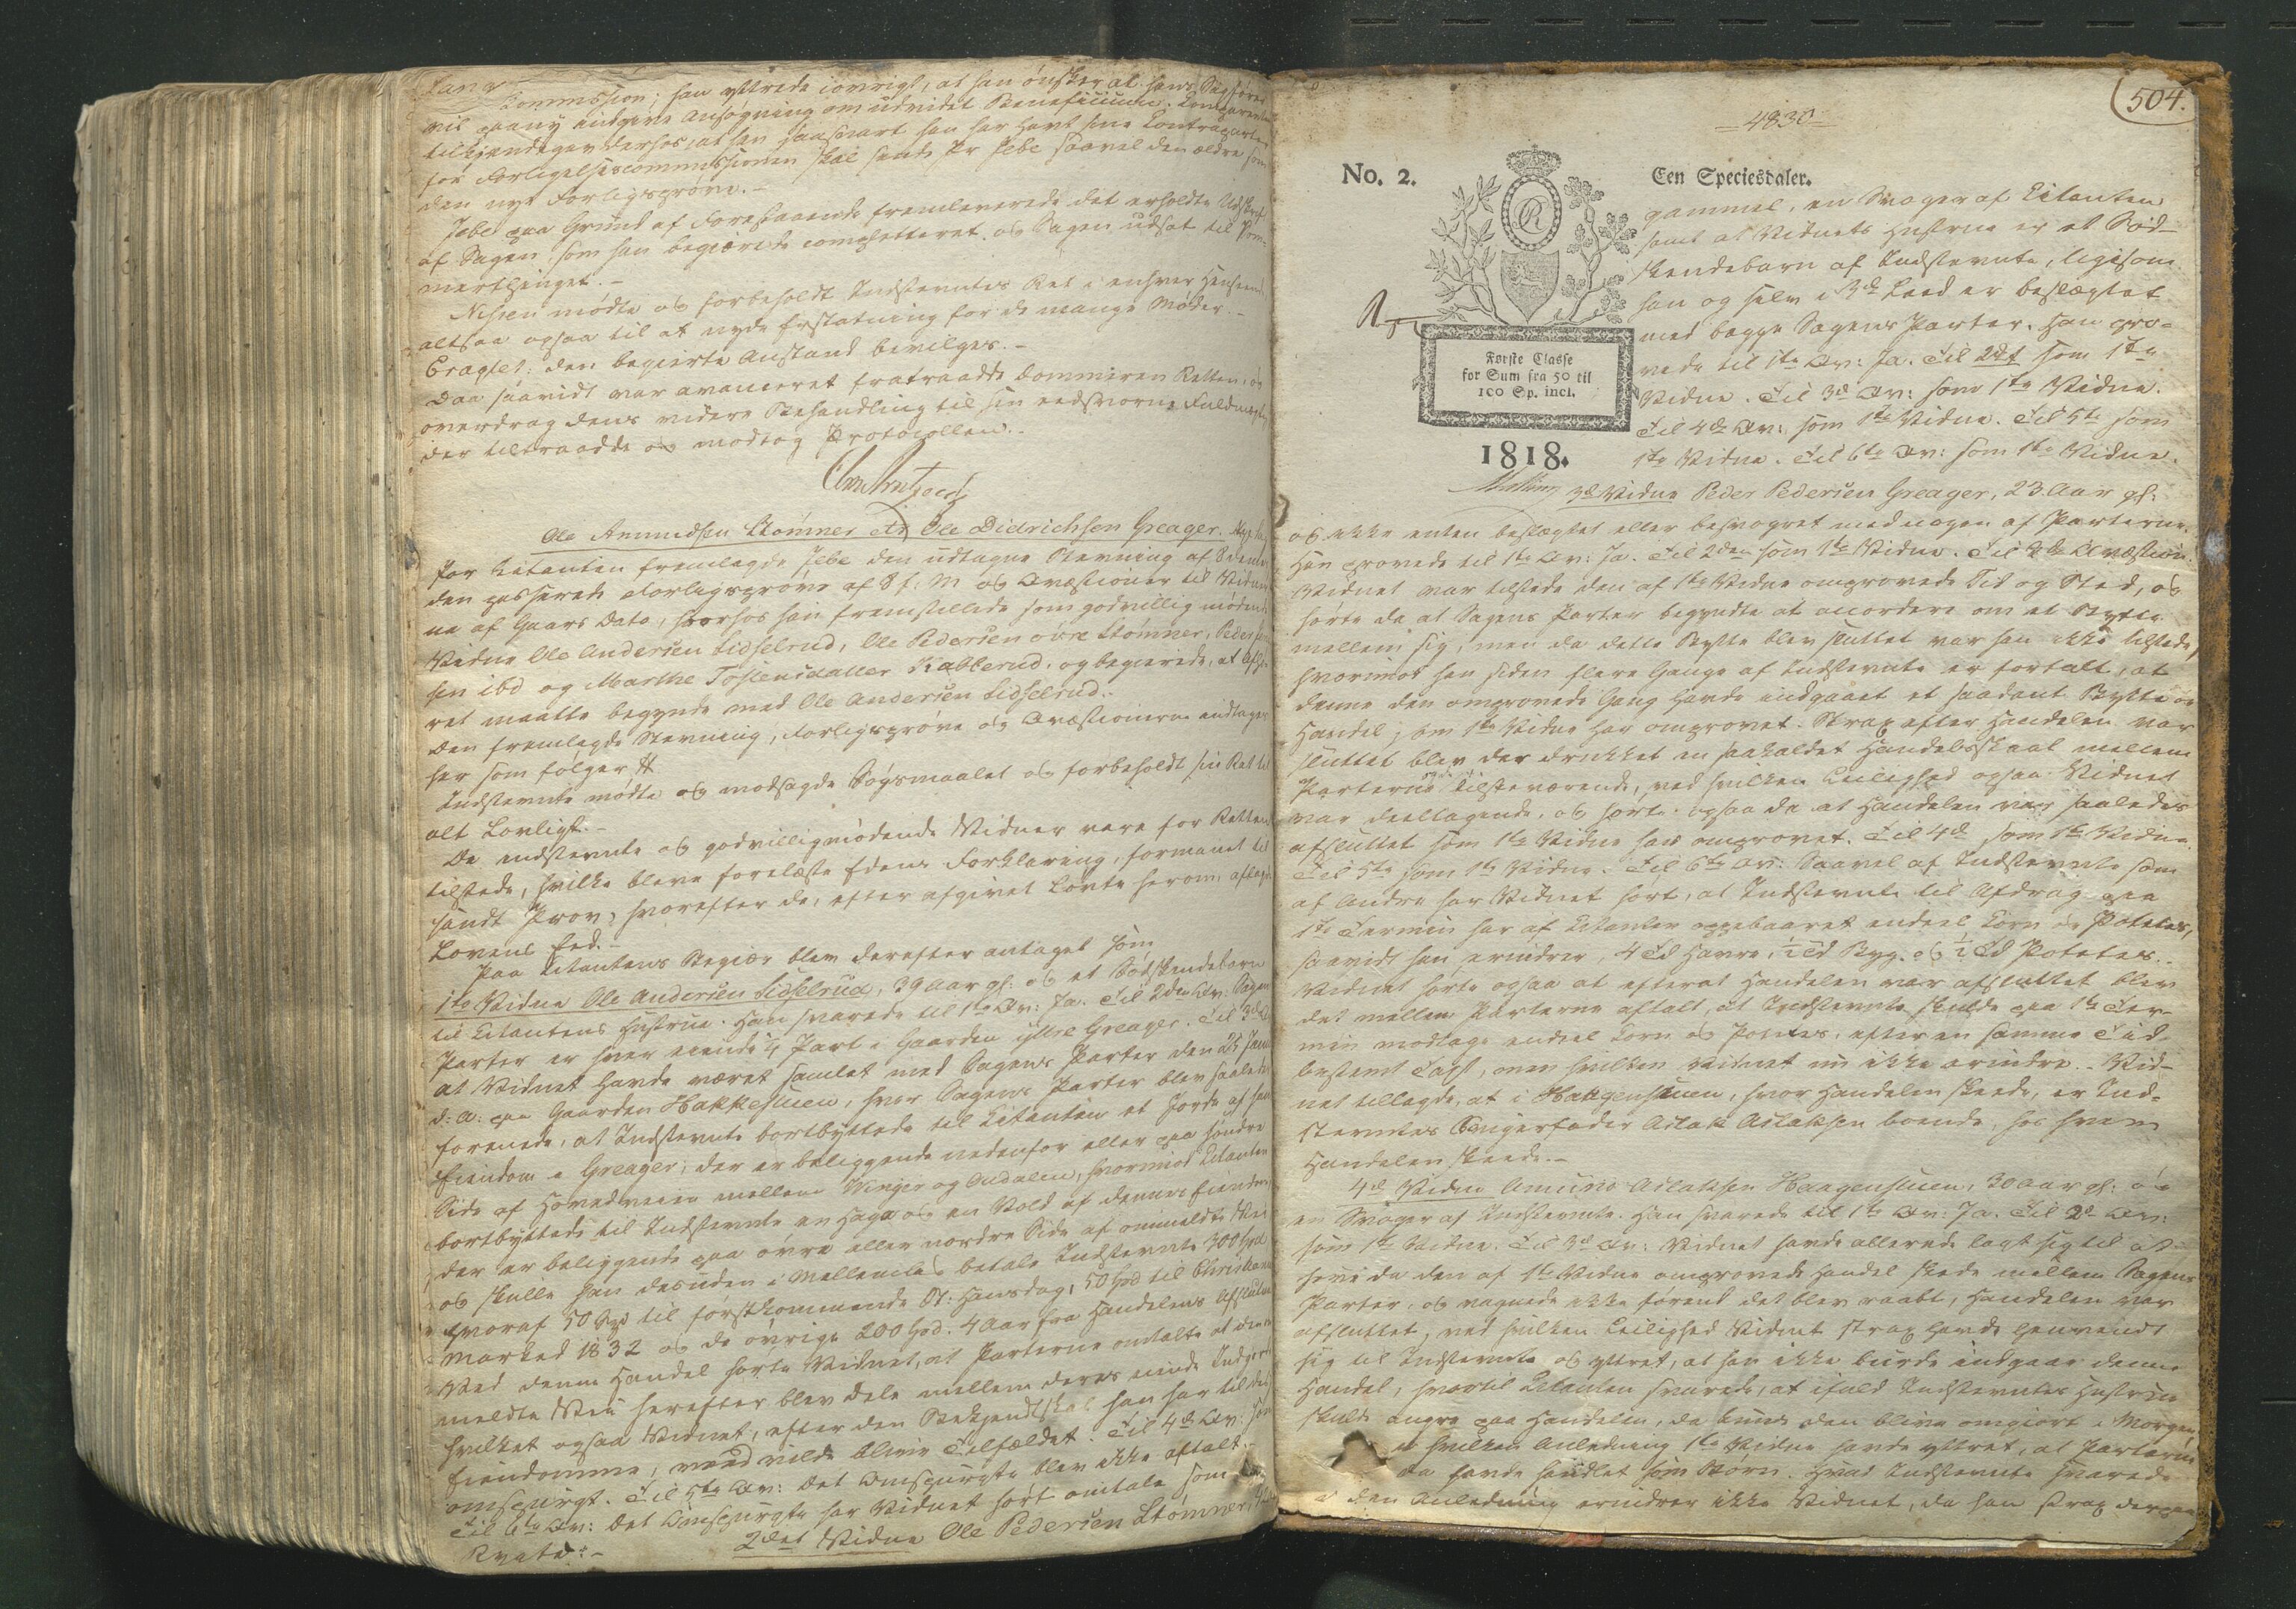 Kommission; han yttrede iøvrigt, at han ønsker at hans Sagfører
vil paany indgive Ansøgning om udvidet Beneficium. Comparenten
tilkjendegav derhos, at han saasnart han har havt sine Contraparter
for Forligelsescommissionen skal sende Pr Jebe saavel den ældre som
den nye Forligsprøve.-
Jebe paa Grund af Foreståaende fremleverede det erholdte Udskrift
af Sagen, som han begjærede completteret, og Sagen udsat til
merthinget.-
Nissen mødte og forbeholdt Indstevntes Ret i enhver Henseende
altsaa ogsaa til at nyde Erstatning for de mange Møder.-
Eragtet: den begjerte Anstand bevilges.-
Daa saavidt var avanceret fratraadte Dommeren Retten, og
overdrog dens videre Behandling til sin eedsvorne Fuldmægtig
der tiltraadte og modtog Protocollen.-
Ole Amundsen Stømner ctr Ole Didrichsen Greager.
For Citanten fremlagde Jebe den udtagne Stevning af 8 dennes
den passerede Forligsprøve af 8 f. M og Qvæstioner til Vidner-
ne af Gaars Dato, hvorhos han fremstillede som godvillig mødende
Vidne Ole Andersen Sidselrud, Ole Pedersen øvre Stømner, Peder
sen ibd og Marthe Tostensdatter Kabberud, og begjerede, at Afhø-
ret maatte begynde med Ole Andersen Sidselrud.-
Den fremlagde Stevning, Forligsprøve og Qvæstionerne indtages
her som følger #
Indstevnte mødte og modsagde Søgsmaalet og forbeholdt sin Ret til
alt Lovligt.-
De indstevnte og godvilligmødende Vidner vare for Retten
tilstede, hvilke bleve forelæste Edens Forklaring, formanet til
sandt Prov, hvorefter de, efter afgivet Løvte herom aflagde
Lovens Eed.-
Paa Citantens Begjær blev derefter antaget som
1te Vidne Ole Andersen Sidselrud, 39 Aar gl: og et Sødskendebarn
til Citantens Hustrue. Han svarede til 1te Qv: Ja. Til 2den Qv: Sagens
Parter er hver eiende ¼ Part i Gaarden ytre Greager. Til 3de
at Vidnet havde været samlet med Sagens Parter den 25
d: A: paa Gaarden Hakkesuen, hvor Sagens Parter blev saaledes
forenede, at Indstevnte bortbyttede til Citanten et Jorde af sin
Eiendom i Greager, der er beliggende nedenfor eller paa søndre
Side af Hovedveien mellem Winger og Oudalen, hvorimod Citanten
bortbyttede til Indstevnte en Hage og en Vold af denne Eiendom
der er beliggende paa øvre eller nordre Side af ommeldte Vei
og skulle han desuden i Mellemlag betale Indstevnte 300 Spd
hvoraf 50 Spd til førstkommende St: Hansdag, 50 Spd til Christiania
Marked 1832 og de øvrige 200 Spd. 4 Aar fra Handelens Afslutning
Ved denne Handel hørte Vidnet, at Parterne omtalte at den om-
meldte Vei herefter blev Dele mellem deres eiende
hvilket ogsaa Vidnet, efter den Bekjendtskab han har til
Eiendomme, vilde blive Tilfældet. Til 4de Qv:
omspurgt. Til 5te Qv: det Omspurgte blev ikke aftalt.
Til 6te Qv: det Omspurgte har Vidnet hørt omtale som
2det Vidne Ole Pedersen Stømner,
504.
4830
No. 2.
Een Speciesdaler.
R
Første Classe
for Sum fra 50 til
100 Sp. incl.
1818.
gammel, en Svoger af Citanten
samt at Vidnets Hustrue er et Sød-
skendebarn af Indstevnte, ligesom
han og selv i 3d Leed er beslægtet
med begge Sagens Parter. Han pro-
vede til 1te Qv: Ja. Til 2det som 1te
Vidne. Til 3d Qv: som 1te Vidne.
Til 4de Qv: som 1te Vidne. Til 5te som
1te Vidne. Til 6te Qv: som 1te Vidne.
3d Vidne Peder Pedersen Greager, 23 Aar gl:
og ikke enten beslægtet eller besvogret med nogen af Parterne.
Han provede til 1te Qv: Ja. Til 2den som 1te Vidne. Til 3de Qvæstion:
Vidnet var tilstede den af 1te Vidne omprovede Tid og Sted, og
hørte da at Sagens Parter begyndte at accordere om et Bytte
mellem sig, men da dette Bytte blev sluttet var han ikke tilstede,
hvorimot han siden flere Gange af Indstevnte er fortalt, at
denne den omprovede Gang havde indgaaet et saadant Bytte og
Handel, om 1te Vidne har omprovet. Strax efter Handelen var
sluttet blev der drukket en saakaldet Handelsskaal mellem
Parterne Tilstedeværende, ved hvilken Leilighed ogsaa Vidnet
var deeltagende, og hørte ogsaa da at Handelen var saaledes
afsluttet som 1te Vidne har omprovet. Til 4de som 1te Vidne
Til 5te som 1te Vidne. Til 6te Qv: Saavel af Indstevnte som
af Andre har Vidnet hørt, at Indstevnte til Afdrag paa
1te Termin har af Citanten oppebaaret endeel Korn og Potetes,
saavidt han erindrer, 4 Td Havre, ½ Td Byg. og ½ Td Potetes.-
Vidnet hørte ogsaa at efterat Handelen var afsluttet blev
det mellem Parterne aftalt, at Indstevnte skulde paa 1te Ter-
min modtage endeel Korn og Potetes, efter en samme Tid
bestemt Taxt, men hvilken Vidnet nu ikke erindre.- Vid-
net tillagde, at i Hakgensuen, hvor Handelen skeede, er Ind-
stevntes Svigerfader Aslak Aslaksen boende, hos hvem
Handelen skeede.-
4de Vidne Amund Aslaksen Haagensuen, 30 Aar gl: og
en Svoger af Indstevnte. Han svarede til 1te Qv: Ja. Til 2de Qv:
som 1te Vidne. Til 3de Qv: Vidnet havde allerede lagt sig til at
sove da den af 1te Vidne omprovede Handel skede mellem Sagens
Parter, og vagnede ikke førend det blev raabt, Handelen var
afsluttet, ved hvilken Leilighed Vidnet strax havde henvendt
sig til Indstevnte og yttret, at han ikke burde indgaae denne
Handel, hvortil Citanten svarede, at ifald Indstevntes Hustrue
skulde angre paa Handelen, da kunde den blive omgjort i Morgen
hvilken Anledning 1te Vidne havde yttret, at Parterne
da havde handlet som Børn. Hvad Indstevnte svarede
den Anledning erindrer ikke Vidnet, da han strax derpaa